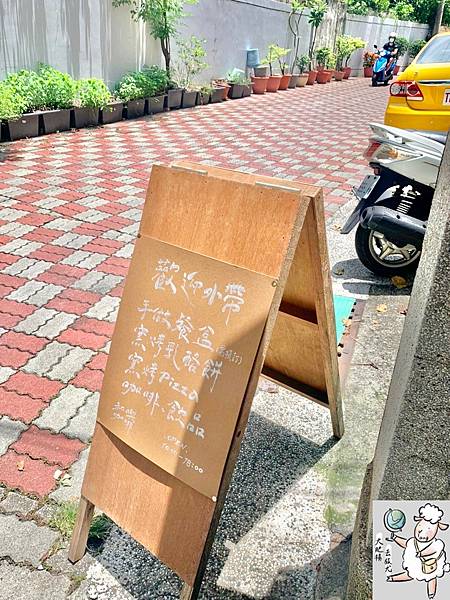 歡迎外帶
手做餐盒(需預訂)
窯烤乳酪餅
窯烤Pizza
咖啡、飲品
OPEN